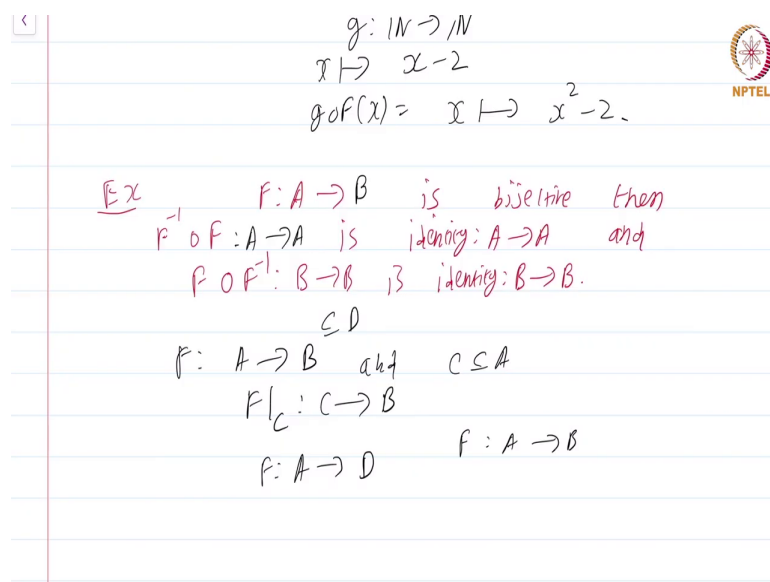 g : ℕ → ℕ
x ↦ x - 2
NPTEL
g o F(x) = x ↦ x² - 2.
Ex F : A → B is bijective then
F⁻¹ o F : A → A is identity : A → A and
F o F⁻¹ : B → B is identity : B → B.
⊆ D
F : A → B and C ⊆ A
F|_C : C → B
F : A → B
F : A → D